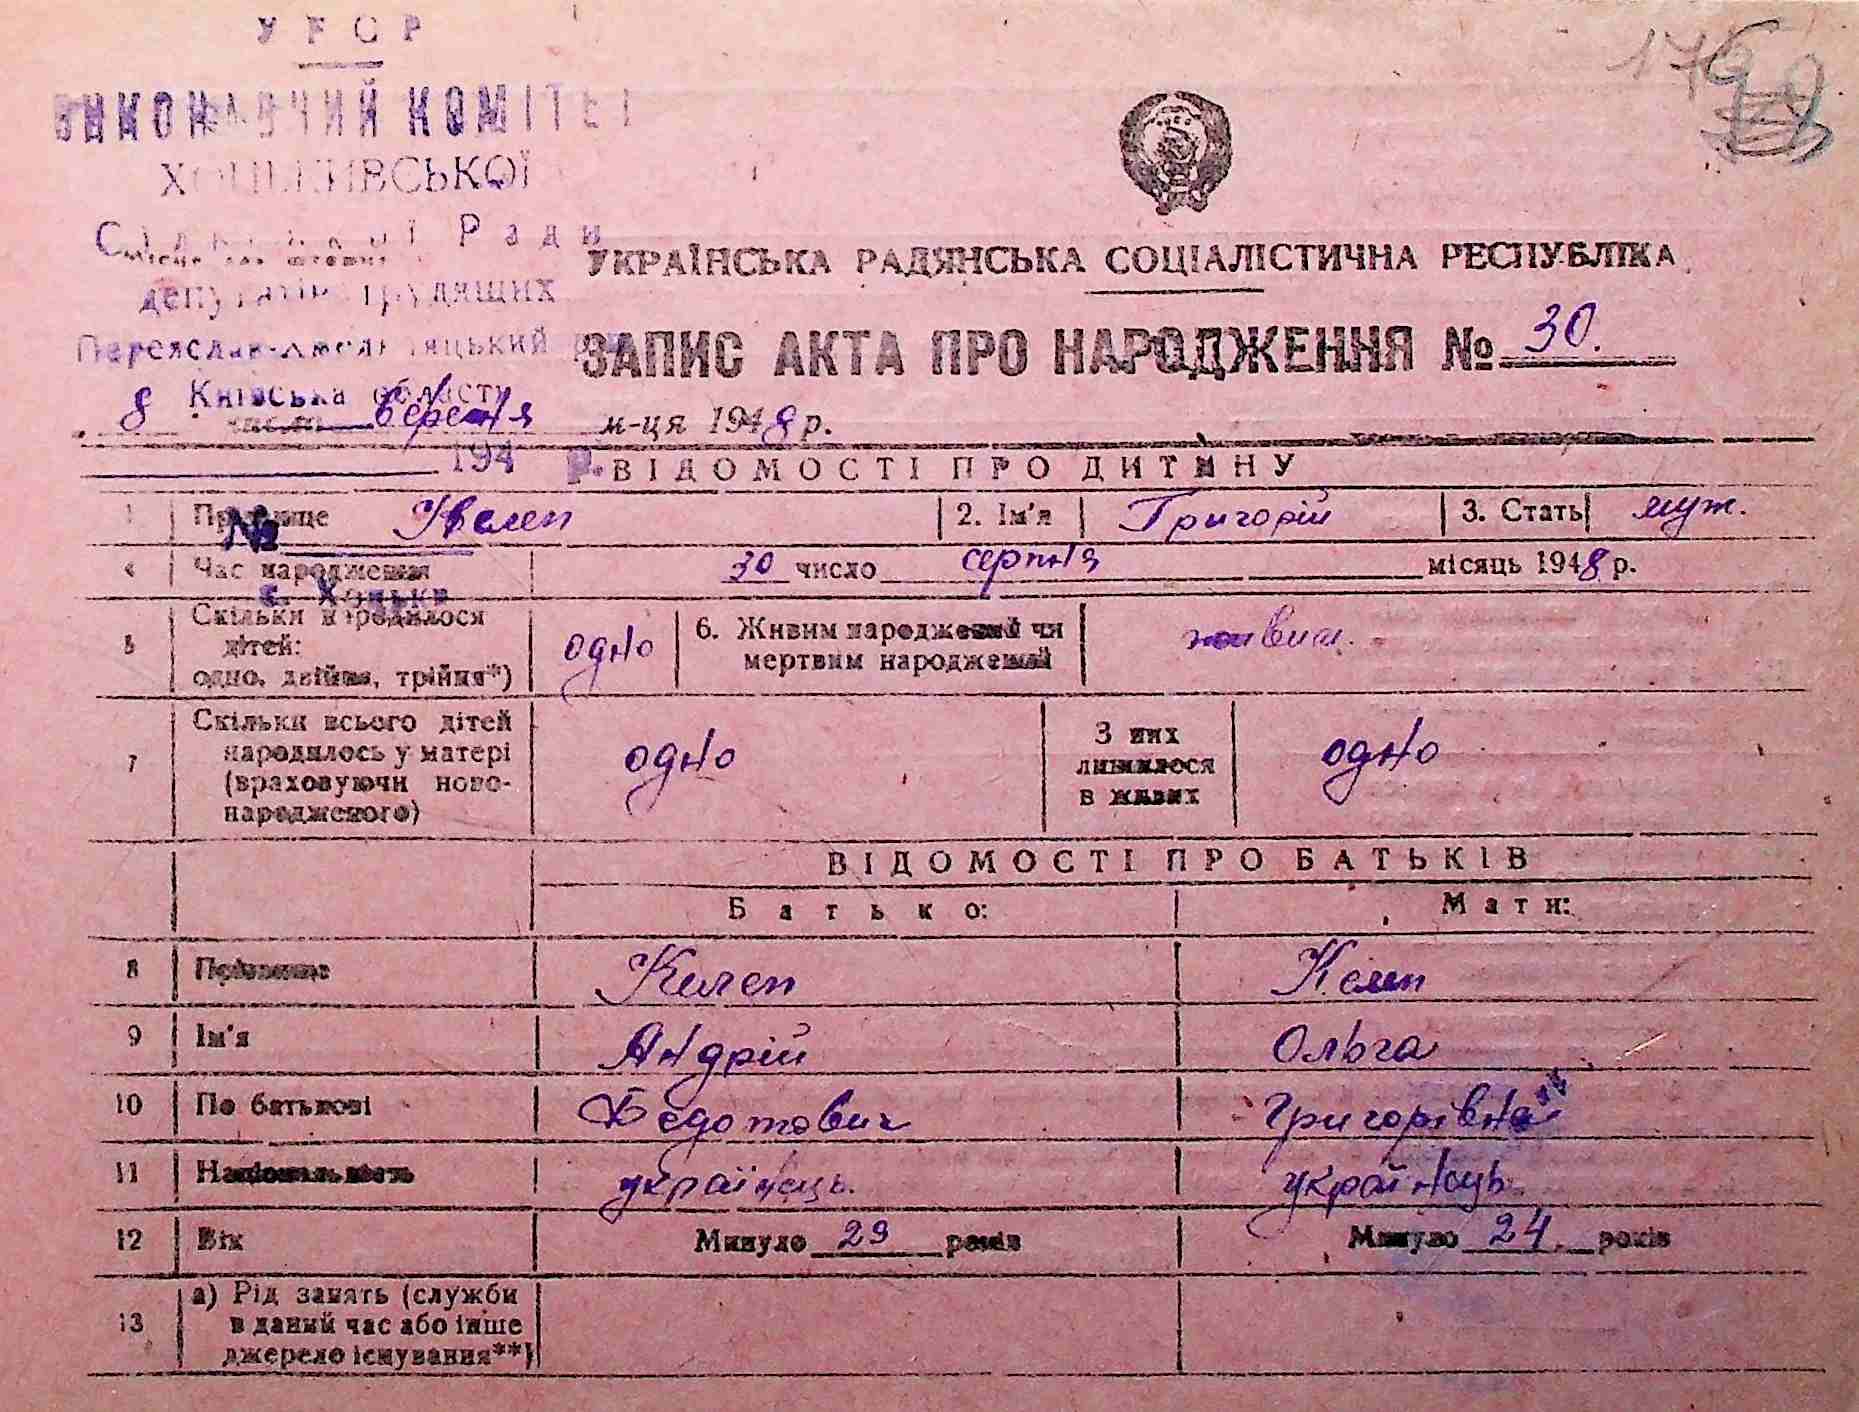 УРСР
ВИКОНАВЧИЙ КОМІТЕТ
ХОЦЬКІВСЬКОЇ
Сільської Ради
депутатів трудящих
Переяслав-Хмельницький
Київська область
176
УКРАЇНСЬКА РАДЯНСЬКА СОЦІАЛІСТИЧНА РЕСПУБЛІКА
ЗАПИС АКТА ПРО НАРОДЖЕННЯ № 30.
8 число м-ця 1948 р.
194 р.
ВІДОМОСТІ ПРО ДИТИНУ
1 Прізвище 2. Ім'я Григорій 3. Стать муж.
№
4 Час народження 30 число серпня місяць 1948 р.
с. Хоцьки
5 Скільки народилося дітей: одно, двійня, трійня*) одно 6. Живим народжений чи мертвим народжений живим.
7 Скільки всього дітей народилось у матері (враховуючи новонародженого) одно З них лишилося в живих одно
ВІДОМОСТІ ПРО БАТЬКІВ
Батько: Мати:
8 Прізвище Келеп Келеп
9 Ім'я Андрій Ольга
10 По батькові Федотович Григорівна
11 Національність українець. українець
12 Вік Минуло 29 років Минуло 24 років
13 а) Рід занять (служби в даний час або інше джерело існування**)